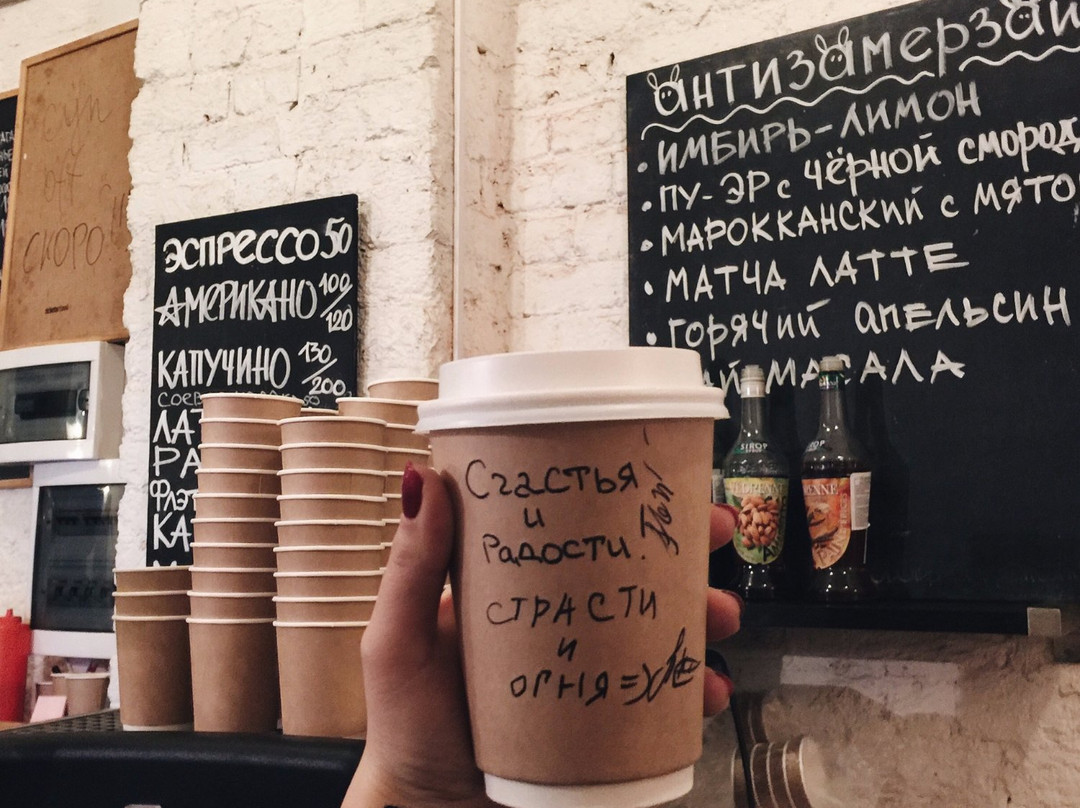 СКОРО!
ЭСПРЕССО 50
АМЕРИКАНО 100/120
КАПУЧИНО 130/200
ЛАТ
РА
ФЛЭТ
КА
антизамерзай
• ИМБИРЬ-ЛИМОН
• ПУ-ЭР с ЧЁРНОЙ СМОРОД
• МАРОККАНСКИЙ С МЯТО
• МАТЧА ЛАТТЕ
• ГОРЯЧИЙ АПЕЛЬСИН
АЙ-МАСАЛА
Счастья
и
Радости.
СТРАСТИ
И
ОГНЯ =)
SIROP